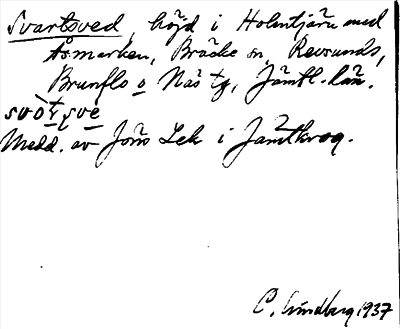 Svartsved, höjd i Holmtjärn med
Åsmarken, Bräcke sn, Revsunds,
Brunflo o Näs tg, Jämtl. län.
svòṭṣve
Medd. av Jöns Lek i Jämtkrog.
C. Lindberg 1937